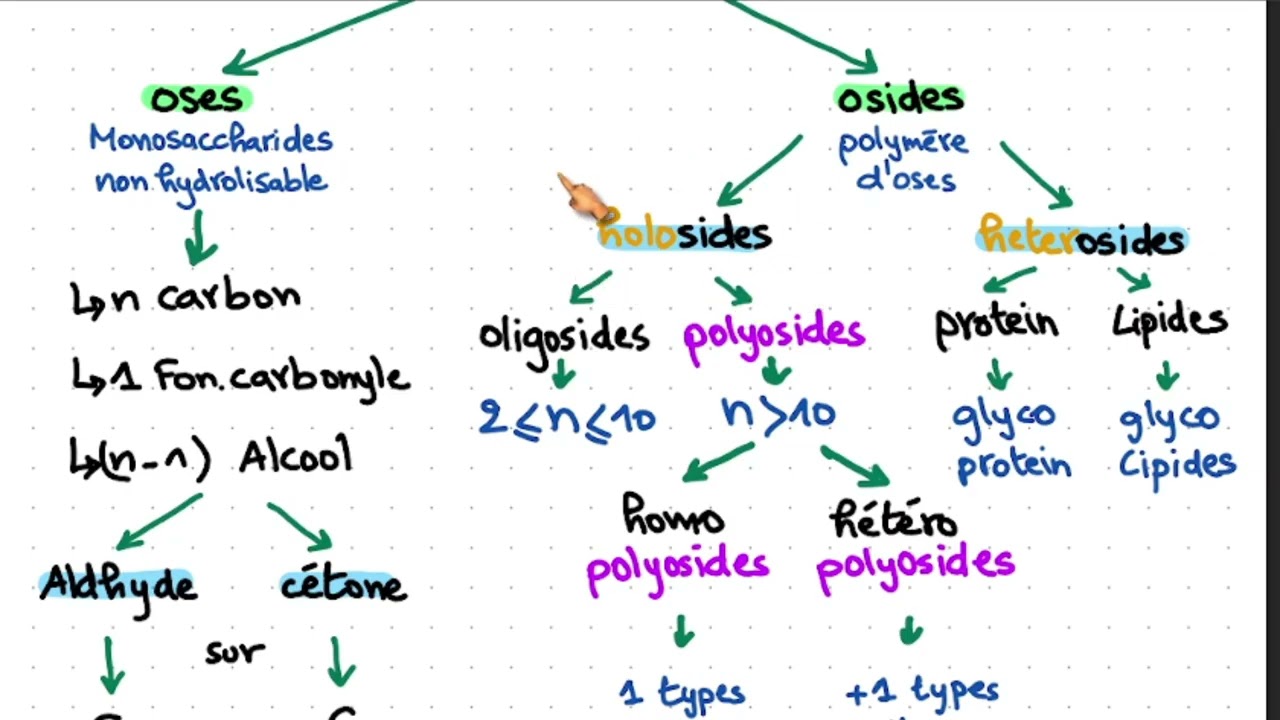 oses
Monosaccharides
non hydrolisable
↳ n carbon
↳ 1 Fon. carbonyle
↳ (n-1) Alcool
Aldhyde
cétone
sur
osides
polymère
d'oses
holosides
heterosides
oligosides
polyosides
2 ≤ n ≤ 10
n > 10
homo
polyosides
hétéro
polyosides
1 types
+1 types
protein
Lipides
glyco
protein
glyco
Lipides